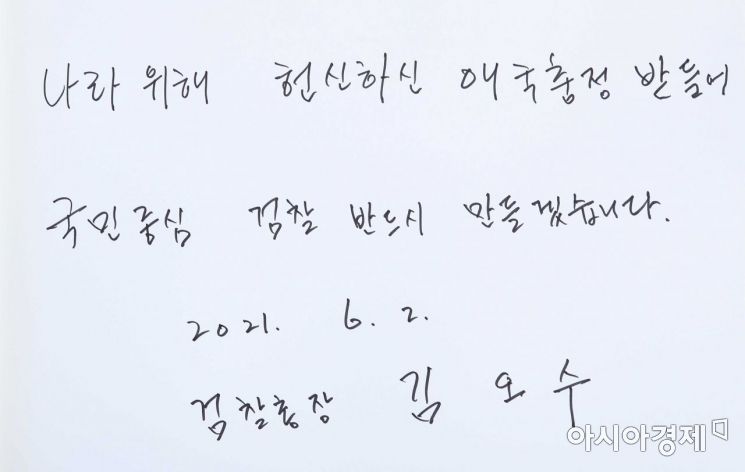 나라 위해 헌신하신 애국충정 받들어
국민중심 검찰 반드시 만들겠습니다.
2021. 6. 2.
검찰총장 김오수
아시아경제